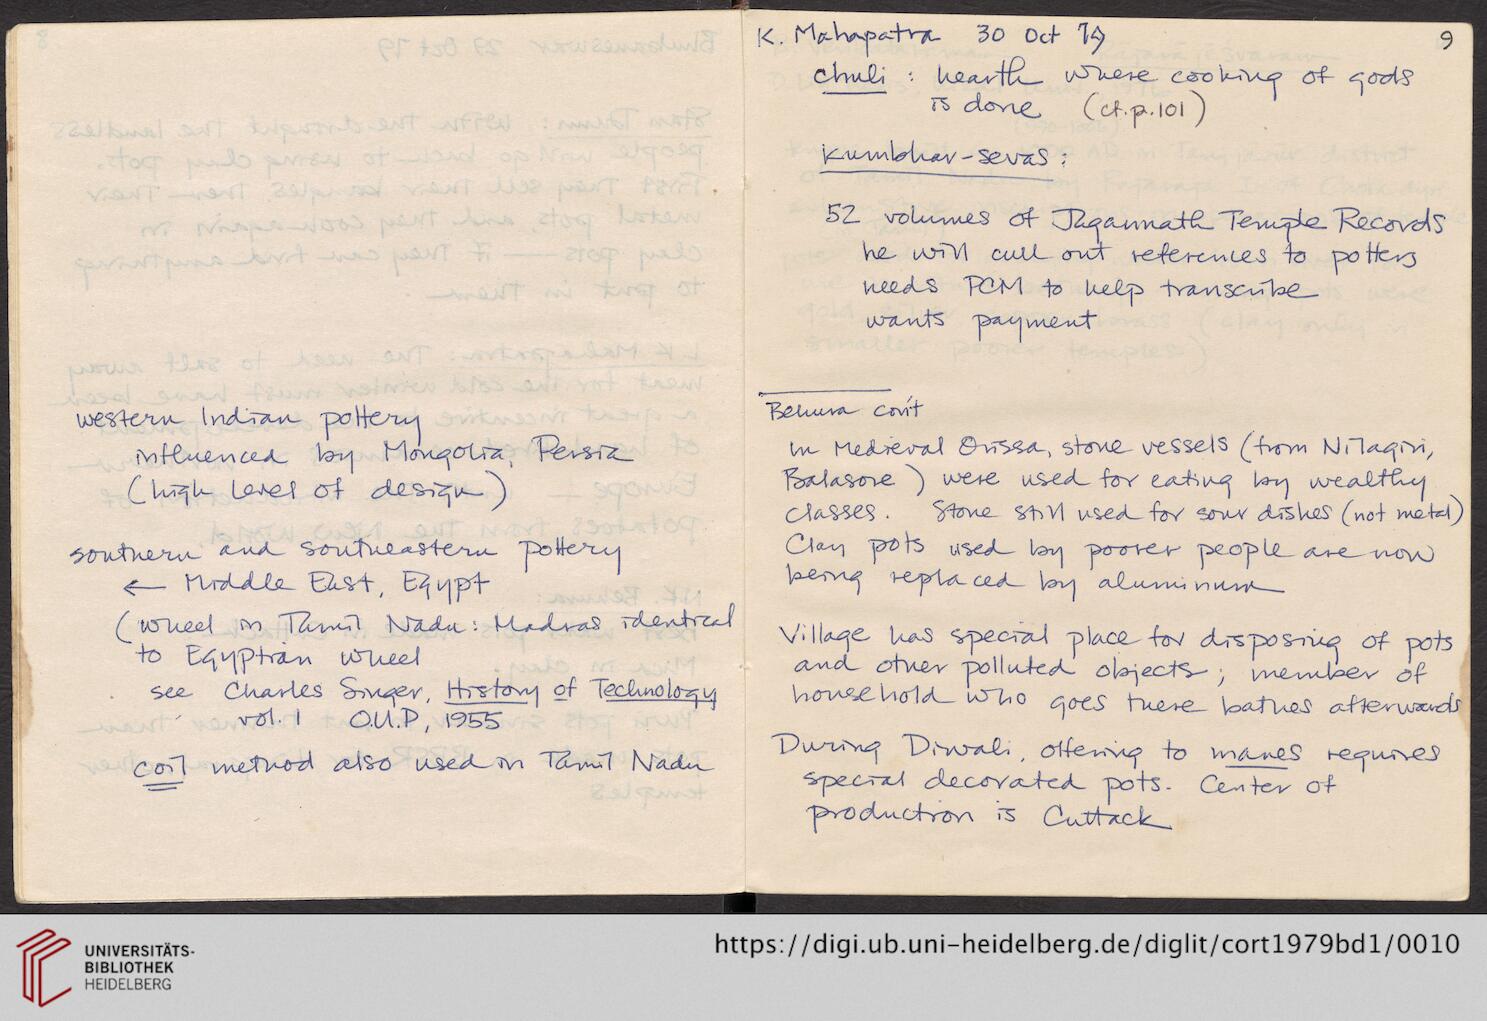 western Indian pottery
influenced by Mongolia, Persia
(high level of design)
southern and southeastern pottery
← Middle East, Egypt
(wheel in Tamil Nadu: Madras identical
to Egyptian wheel
see Charles Singer, History of Technology
vol. 1 O.U.P, 1955
coil method also used in Tamil Nadu
K. Mahapatra 30 Oct 79
9
chuli : hearth where cooking of gods
is done (cf. p. 101)
Kumbhar-sevas :
52 volumes of Jagannath Temple Records
he will cull out references to potters
needs PCM to help transcribe
wants payment
Behura con't
In Medieval Orissa, stone vessels (from Nilagiri,
Balasore) were used for eating by wealthy
classes. Stone still used for sour dishes (not metal)
Clay pots used by poorer people are now
being replaced by aluminum
Village has special place for disposing of pots
and other polluted objects; member of
household who goes there bathes afterwards
During Diwali, offering to manes requires
special decorated pots. Center of
production is Cuttack
UNIVERSITÄTS-
BIBLIOTHEK
HEIDELBERG
https://digi.ub.uni-heidelberg.de/diglit/cort1979bd1/0010